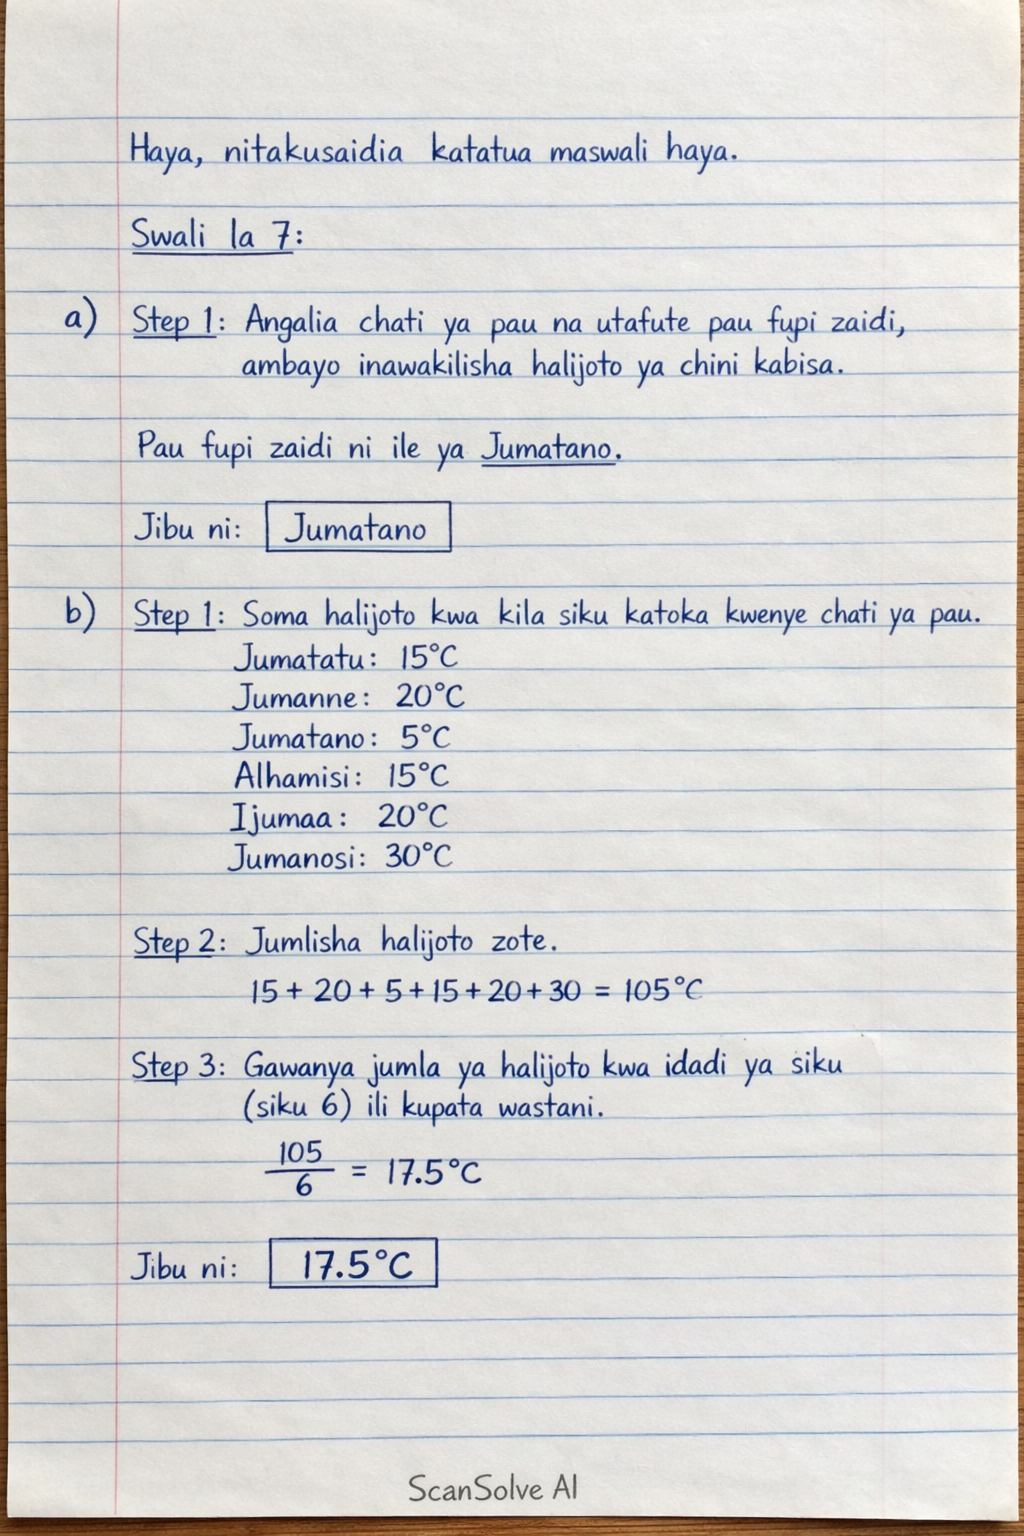 Haya, nitakusaidia katatua maswali haya.
Swali la 7:
a) Step 1: Angalia chati ya pau na utafute pau fupi zaidi,
ambayo inawakilisha halijoto ya chini kabisa.
Pau fupi zaidi ni ile ya Jumatano.
Jibu ni: Jumatano
b) Step 1: Soma halijoto kwa kila siku katoka kwenye chati ya pau.
Jumatatu: 15°C
Jumanne: 20°C
Jumatano: 5°C
Alhamisi: 15°C
Ijumaa: 20°C
Jumanosi: 30°C
Step 2: Jumlisha halijoto zote.
15 + 20 + 5 + 15 + 20 + 30 = 105°C
Step 3: Gawanya jumla ya halijoto kwa idadi ya siku
(siku 6) ili kupata wastani.
105/6 = 17.5°C
Jibu ni: 17.5°C
ScanSolve AI